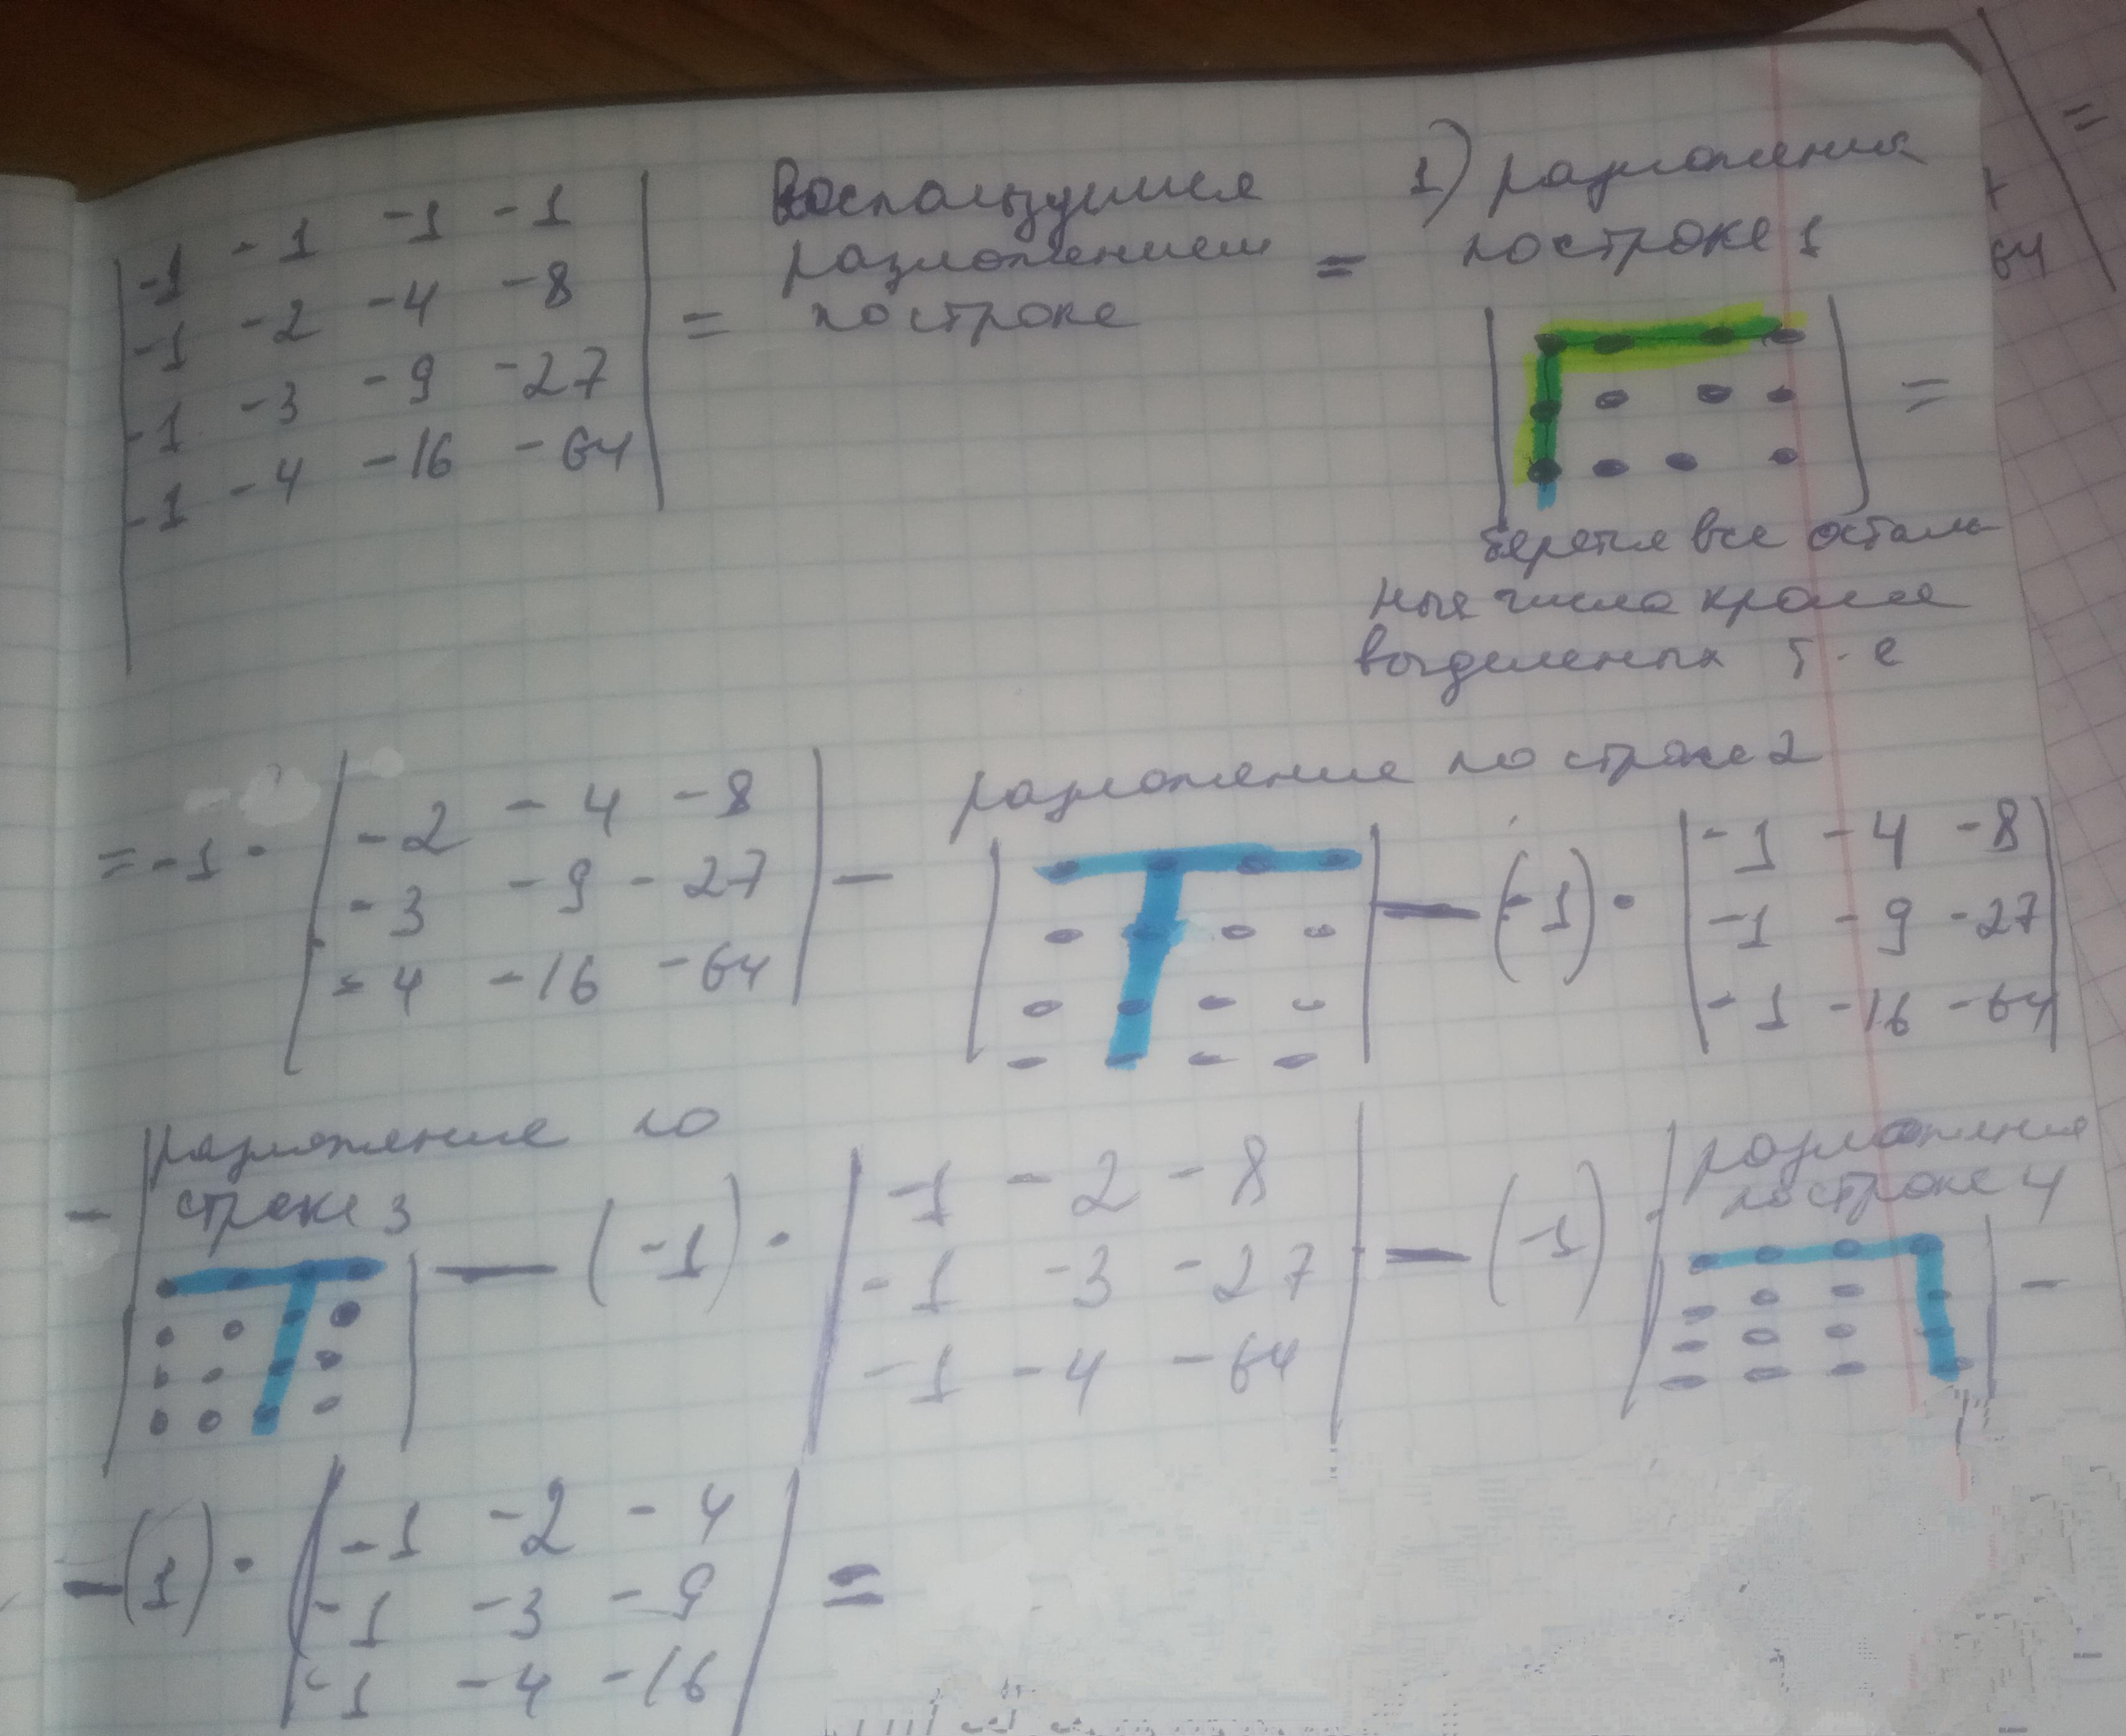 -1 -1 -1 -1
-1 -2 -4 -8
-1 -3 -9 -27
-1 -4 -16 -64
=
Воспользуемся
разложением
по строке
=
1) разложения
по строке 1
=
берется все осталь
ные числа кроме
выделенных т-е
= -1 ·
-2 -4 -8
-3 -9 -27
-4 -16 -64
-
разложение по строке 2
- (-1) ·
-1 -4 -8
-1 -9 -27
-1 -16 -64
-
разложение по
строке 3
- (-1) ·
-1 -2 -8
-1 -3 -27
-1 -4 -64
- (-1) ·
разложение
по строке 4
-
- (1) ·
-1 -2 -4
-1 -3 -9
-1 -4 -16
=
=
64